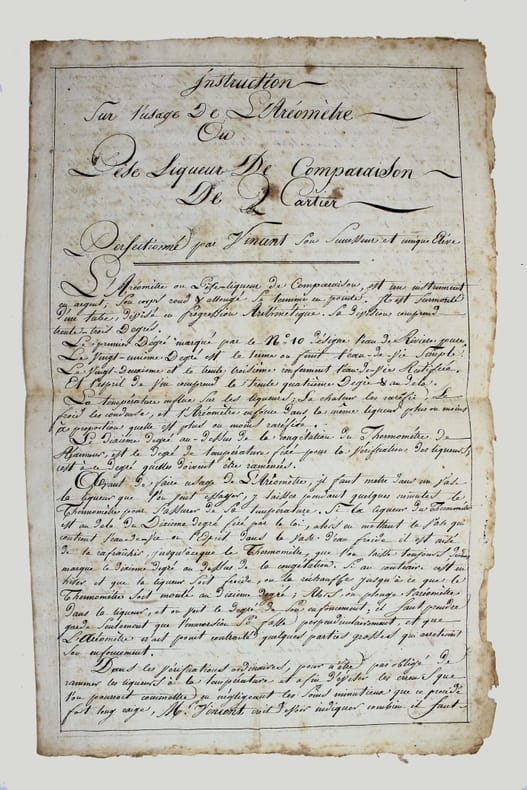 Instruction
Sur l'usage De L'Aréomètre
Ou
Pese Liqueur De Comparaison
De Cartier
Perfectionné par Vincent Son Sucesseur et unique Elève
L'Aréomètre ou Pese-liqueur de Comparaison, est un instrument
en argent; Son corps rond & allongé Se termine en pointe. Il est Surmonté
d'un tube, divisé en progression Arithmétique. Sa division comprend
trente-trois Degrés.
Le premier Degré marqué par le No 10 désigne l'eau de Rivière pure.
Le Vingt-unieme Degré est le terme ou finit l'eau-de-Vie Simple.
Le Vingt-Deuxieme et le trente troisieme renferment l'eau-de-Vie Rectifiée.
Et l'esprit de Vin comprend le trente quatrieme Degré & au dela.
La température influe Sur les liqueurs; la chaleur les raréfie, Le
froid les condense, et l'Aréomètre enfonce dans la même liqueur plus ou moins
à proportion qu'elle est plus ou moins raréfiée.
Le dixieme degré au-dessus de la congélation du Thermomètre de
Réaumur, est le degré de température fixé pour la vérification des liqueurs,
c'est à ce degré qu'elles doivent être ramenées.
Avant de faire usage de L'Aréomètre, il faut mettre dans un Vase
la liqueur que l'on veut essayer, y laisser pendant quelques minutes le
Thermomètre pour S'assurer de Sa température. Si la liqueur du Thermomètre
est au dela du Dixieme degré fixé par la loi, alors en mettant le Vase qui
contient l'eau-de-Vie ou l'Esprit dans un Vase d'eau froide il est aisé
de la rafraichir, jusqu'à ce que le Thermomètre, que l'on laisse toujours dedans
marque le dixieme degré au dessus de la congelation. Si au contraire on est en
hiver et que la liqueur Soit froide, on la réchauffe jusqu'à ce que le
Thermomètre Soit monté au dixieme degré; Alors on plonge l'aréomètre
dans la liqueur, et on voit le degré de Son enfoncement; il faut prendre
garde Seulement que l'immersion Se fasse perpendiculairement et que
L'Aréomètre n'est point contracté quelques parties grasses qui arretent
Son enfoncement.
Dans les Vérifications ordinaires, pour n'être pas obligé de
ramener les liqueurs à la température et afin d'éviter les erreurs que
l'on pourrait commettre en négligeant les Soins minutieux que ce procédé
fort long exige, Mr. Vincent croit devoir indiquer combien il faut